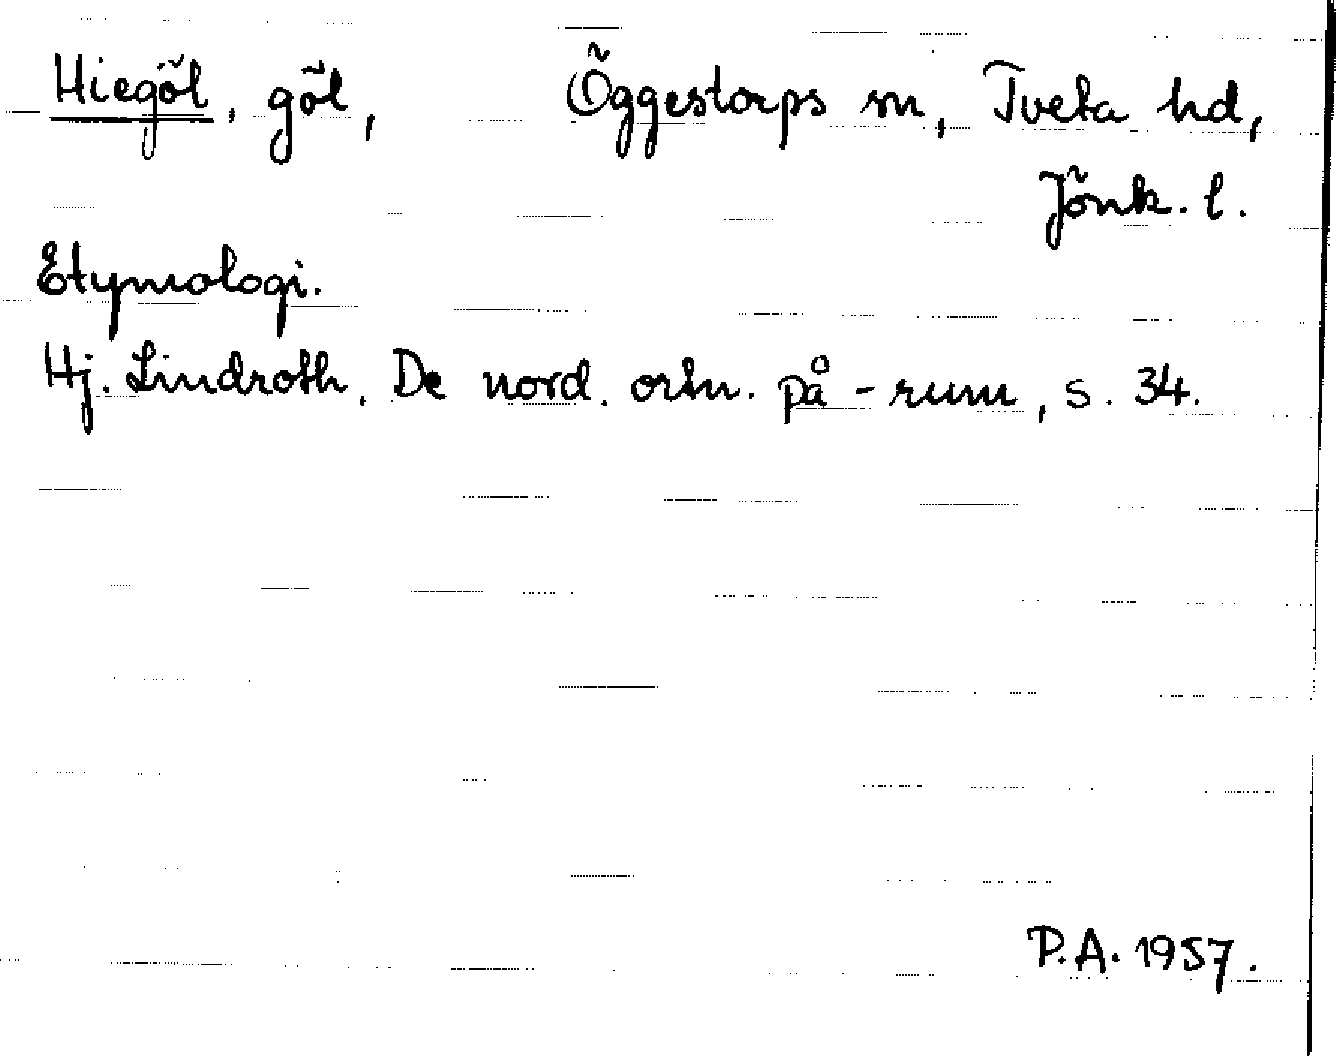 Hiegöl, göl, Öggestorps sn, Tveta hd,
Jönk. l.
Etymologi.
Hj. Lindroth, De nord. ortn. på -rum, s. 34.
P.A. 1957.